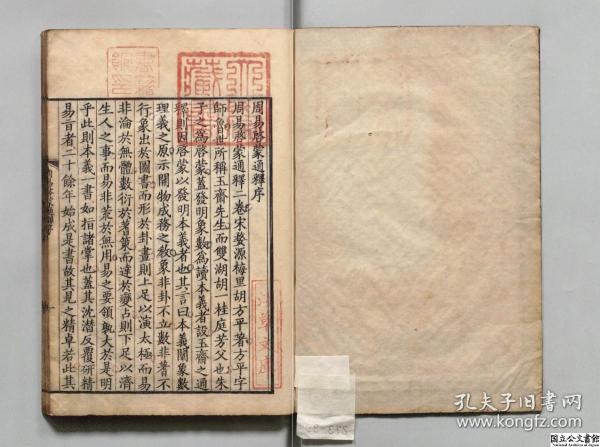 周易啓蒙通釋序
周易啓蒙通釋二卷宋婺源梅里胡方平著方平字
師魯世所稱玉齋先生而雙湖胡一桂庭芳父也朱
子之爲啓蒙蓋發明象數爲讀本義者設玉齋之通
釋則因啓蒙以發明本義者也其言曰本義闡象數
理義之原示開物成務之敎象非卦不立數非蓍不
行象出於圖書而形於卦畫則上足以演太極而易
非淪於無體數衍於蓍策而達於變占則下足以濟
生人之事而易非荒於無用易之要領孰大於是明
乎此則本義一書如指諸掌也蓋其沈潛反覆硏精
易旨者二十餘年始成是書故其見之精卓若此其
孔夫子旧书网
国立公文書館
National Archives of Japan